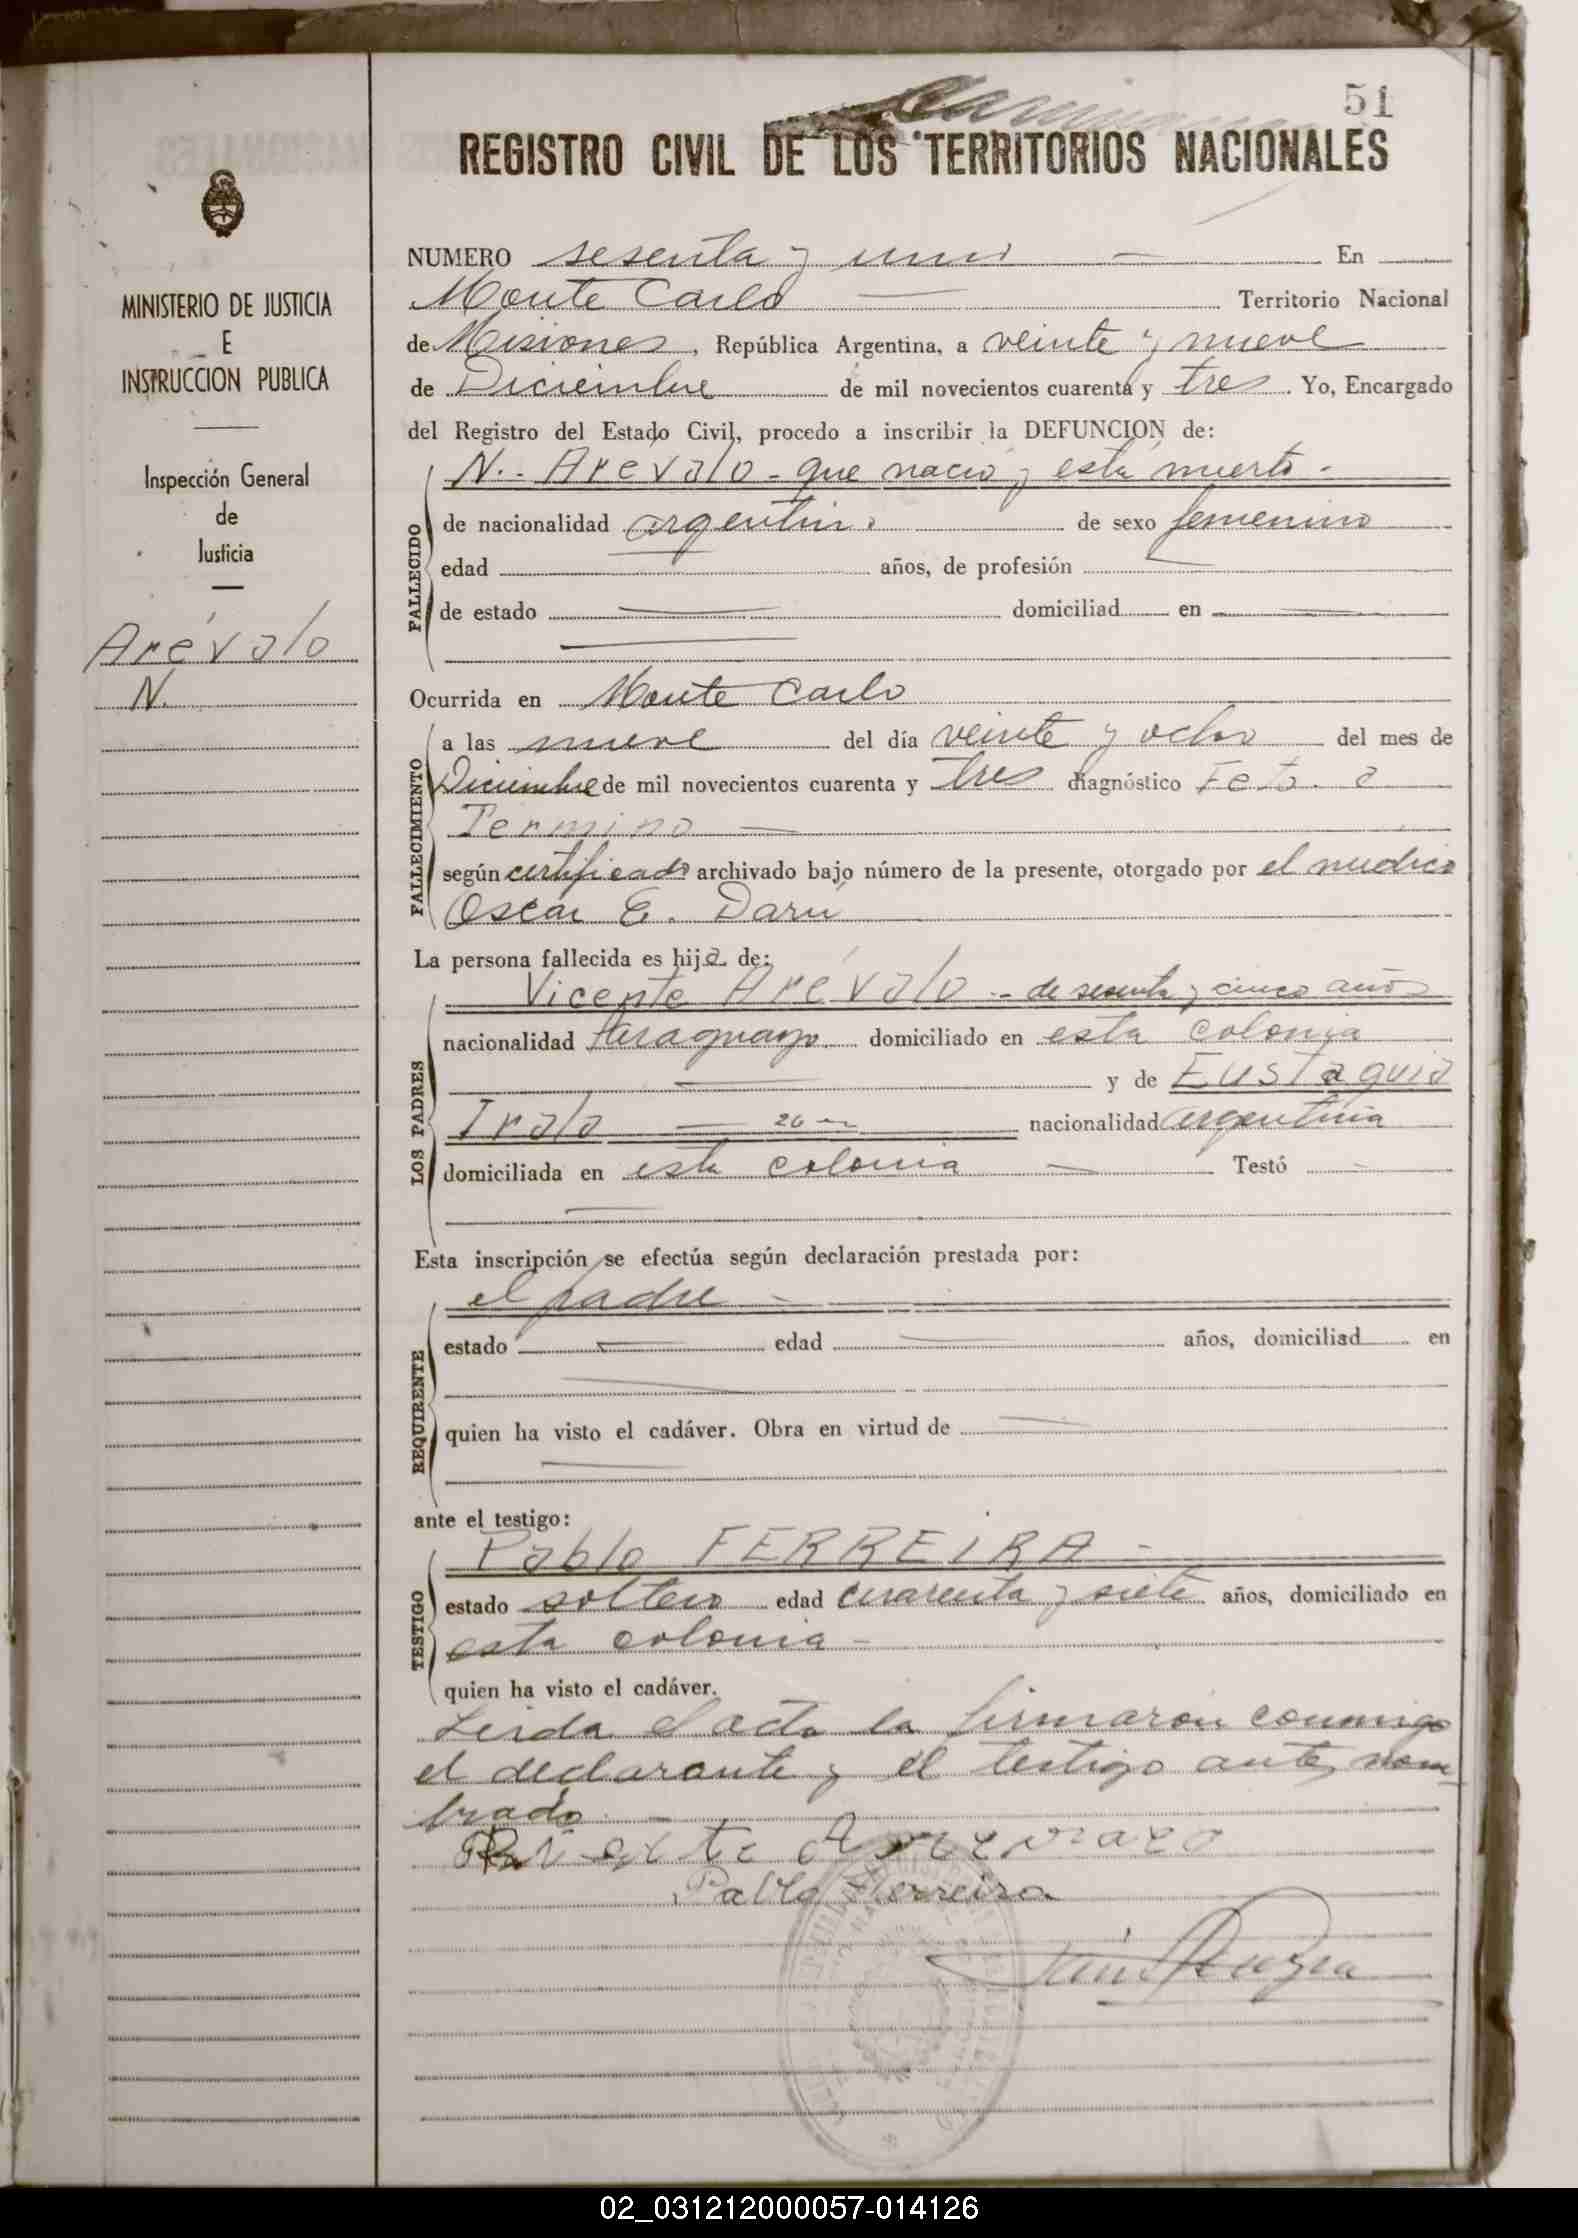 51
REGISTRO CIVIL DE LOS TERRITORIOS NACIONALES
MINISTERIO DE JUSTICIA
E
INSTRUCCION PUBLICA
Inspección General
de
Justicia
Arévalo
N.
NUMERO sesenta y uno — En
Monte Carlo — Territorio Nacional
de Misiones, República Argentina, a veinte y nueve
de Diciembre de mil novecientos cuarenta y tres. Yo, Encargado
del Registro del Estado Civil, procedo a inscribir la DEFUNCION de:
FALLECIDO
N.- Arévalo - que nació y está muerto -
de nacionalidad argentina de sexo femenino
edad años, de profesión —
de estado — domiciliad en —
Ocurrida en Monte Carlo
FALLECIMIENTO
a las nueve del día veinte y ocho del mes de
Diciembre de mil novecientos cuarenta y tres diagnóstico Feto a
Termino —
según certificado archivado bajo número de la presente, otorgado por el medico
Oscar E. Darú
La persona fallecida es hija de:
LOS PADRES
Vicente Arévalo - de sesenta y cinco años
nacionalidad Paraguayo domiciliado en esta colonia
— y de Eustaquia
Irala — 26 nacionalidad argentina
domiciliada en esta colonia — Testó —
Esta inscripción se efectúa según declaración prestada por:
REQUIRENTE
el padre -
estado — edad — años, domiciliad en
quien ha visto el cadáver. Obra en virtud de —
ante el testigo:
TESTIGO
Pablo FERREIRA -
estado soltero edad cuarenta y siete años, domiciliado en
esta colonia -
quien ha visto el cadáver.
Leida el acta la firmaron conmigo
el declarante y el testigo ante nom-
brado. —
Arevalo
Pablo Ferreira
02_031212000057-014126